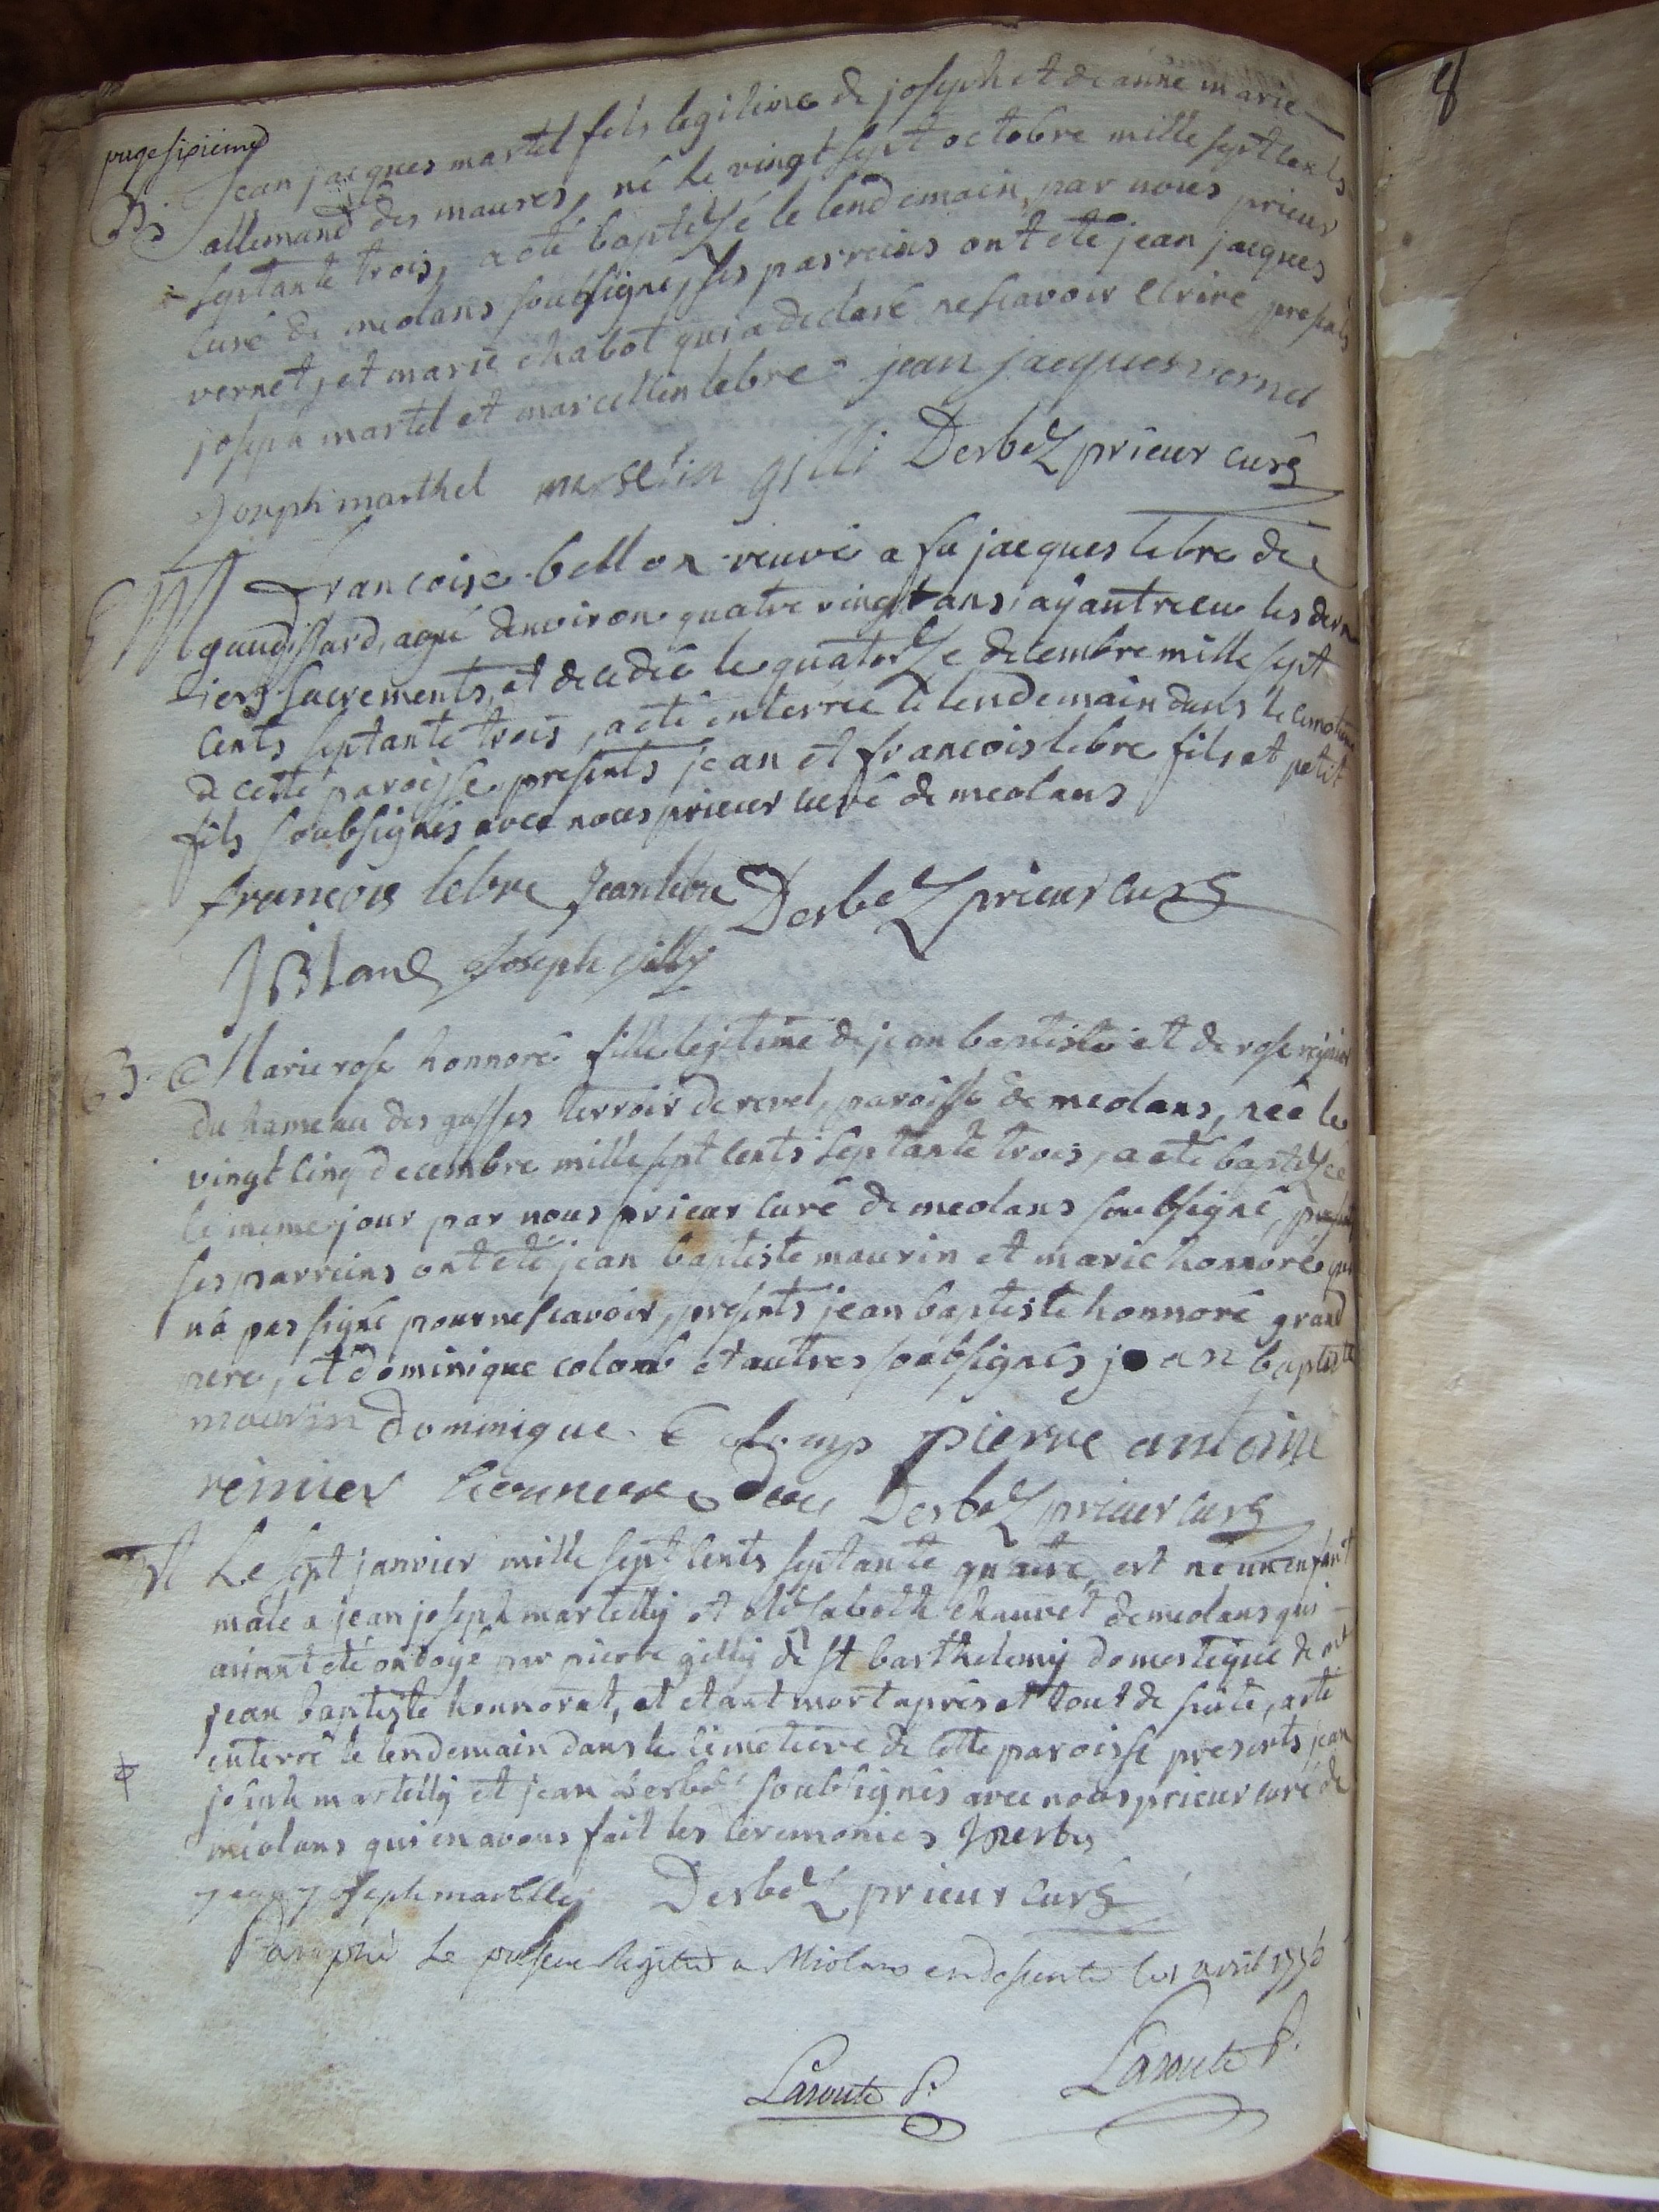 page sixieme
B. Jean jacques martel fils legitime de joseph et de anne marie
allemand des maures, né le vingt sept octobre mille sept cents
septante trois, a eté baptisé le lendemain, par nous prieur
curé de meolans soubsigné, ses parreins ont eté jean jacques
vernet, et marie chabot qui a declaré ne scavoir ecrire, presents
joseph martel et marcellin lebre jean jacques vernet
Joseph marthel gilli Derbez prieur curé
M francoise bellon veuve a fu jacques lebre de
gaudissard, agé d'environ quatre vingt ans, ayant receu les dern
iers sacrements, et decedée le quatorze decembre mille sept
cents septante trois, a eté enterrée le lendemain dans le cimetiere
de cette paroisse presents jean et francois lebre fils et petit
fils soubsignés avec nous prieur curé de meolans
francois lebre Jean lebre Derbez prieur curé
J Blanc Joseph Gilly
B. Marie rose honnoré fille legitime de jean baptiste et de rose reynier
du hameau des gasses terroir de revel, paroisse de meolans, née le
vingt cinq decembre mille sept cents septante trois, a eté baptizée
le meme jour par nous prieur curé de meolans soubsigné,
ses parreins ont eté jean baptiste maurin et marie honnoré qui
n'a pas signé pour ne scavoir, presents jean baptiste honnoré grand
pere, et dominique colomb et autres soubsignés jean baptiste
maurin dominique Colomp pierre antoine
reinier Derbez prieur curé
M Le sept janvier mille sept cents septante quatre, est né un enfant
male a jean joseph martelly et elisabethe chauvet de meolans qui
aiant eté ondoyé par pierre gilly de st barthelemy domestique de mre
jean baptiste honnorat, et etant mort aprés et tout de suite, a eté
enterré le lendemain dans le cimetiere de cette paroisse presents, jean
joseph martelly et jean derbez soubsignés avec nous prieur curé de
meolans qui en avons fait les ceremonies J Derbes
jean joseph martelly Derbez prieur curé
Paraphé Le present Registre a Miolans en descente le 1 avril 1776
Laroute P. Laroute P.